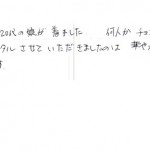 20代の娘が着ました. 何人か チョ
タル させて いただ きましたのは 華やか
す.